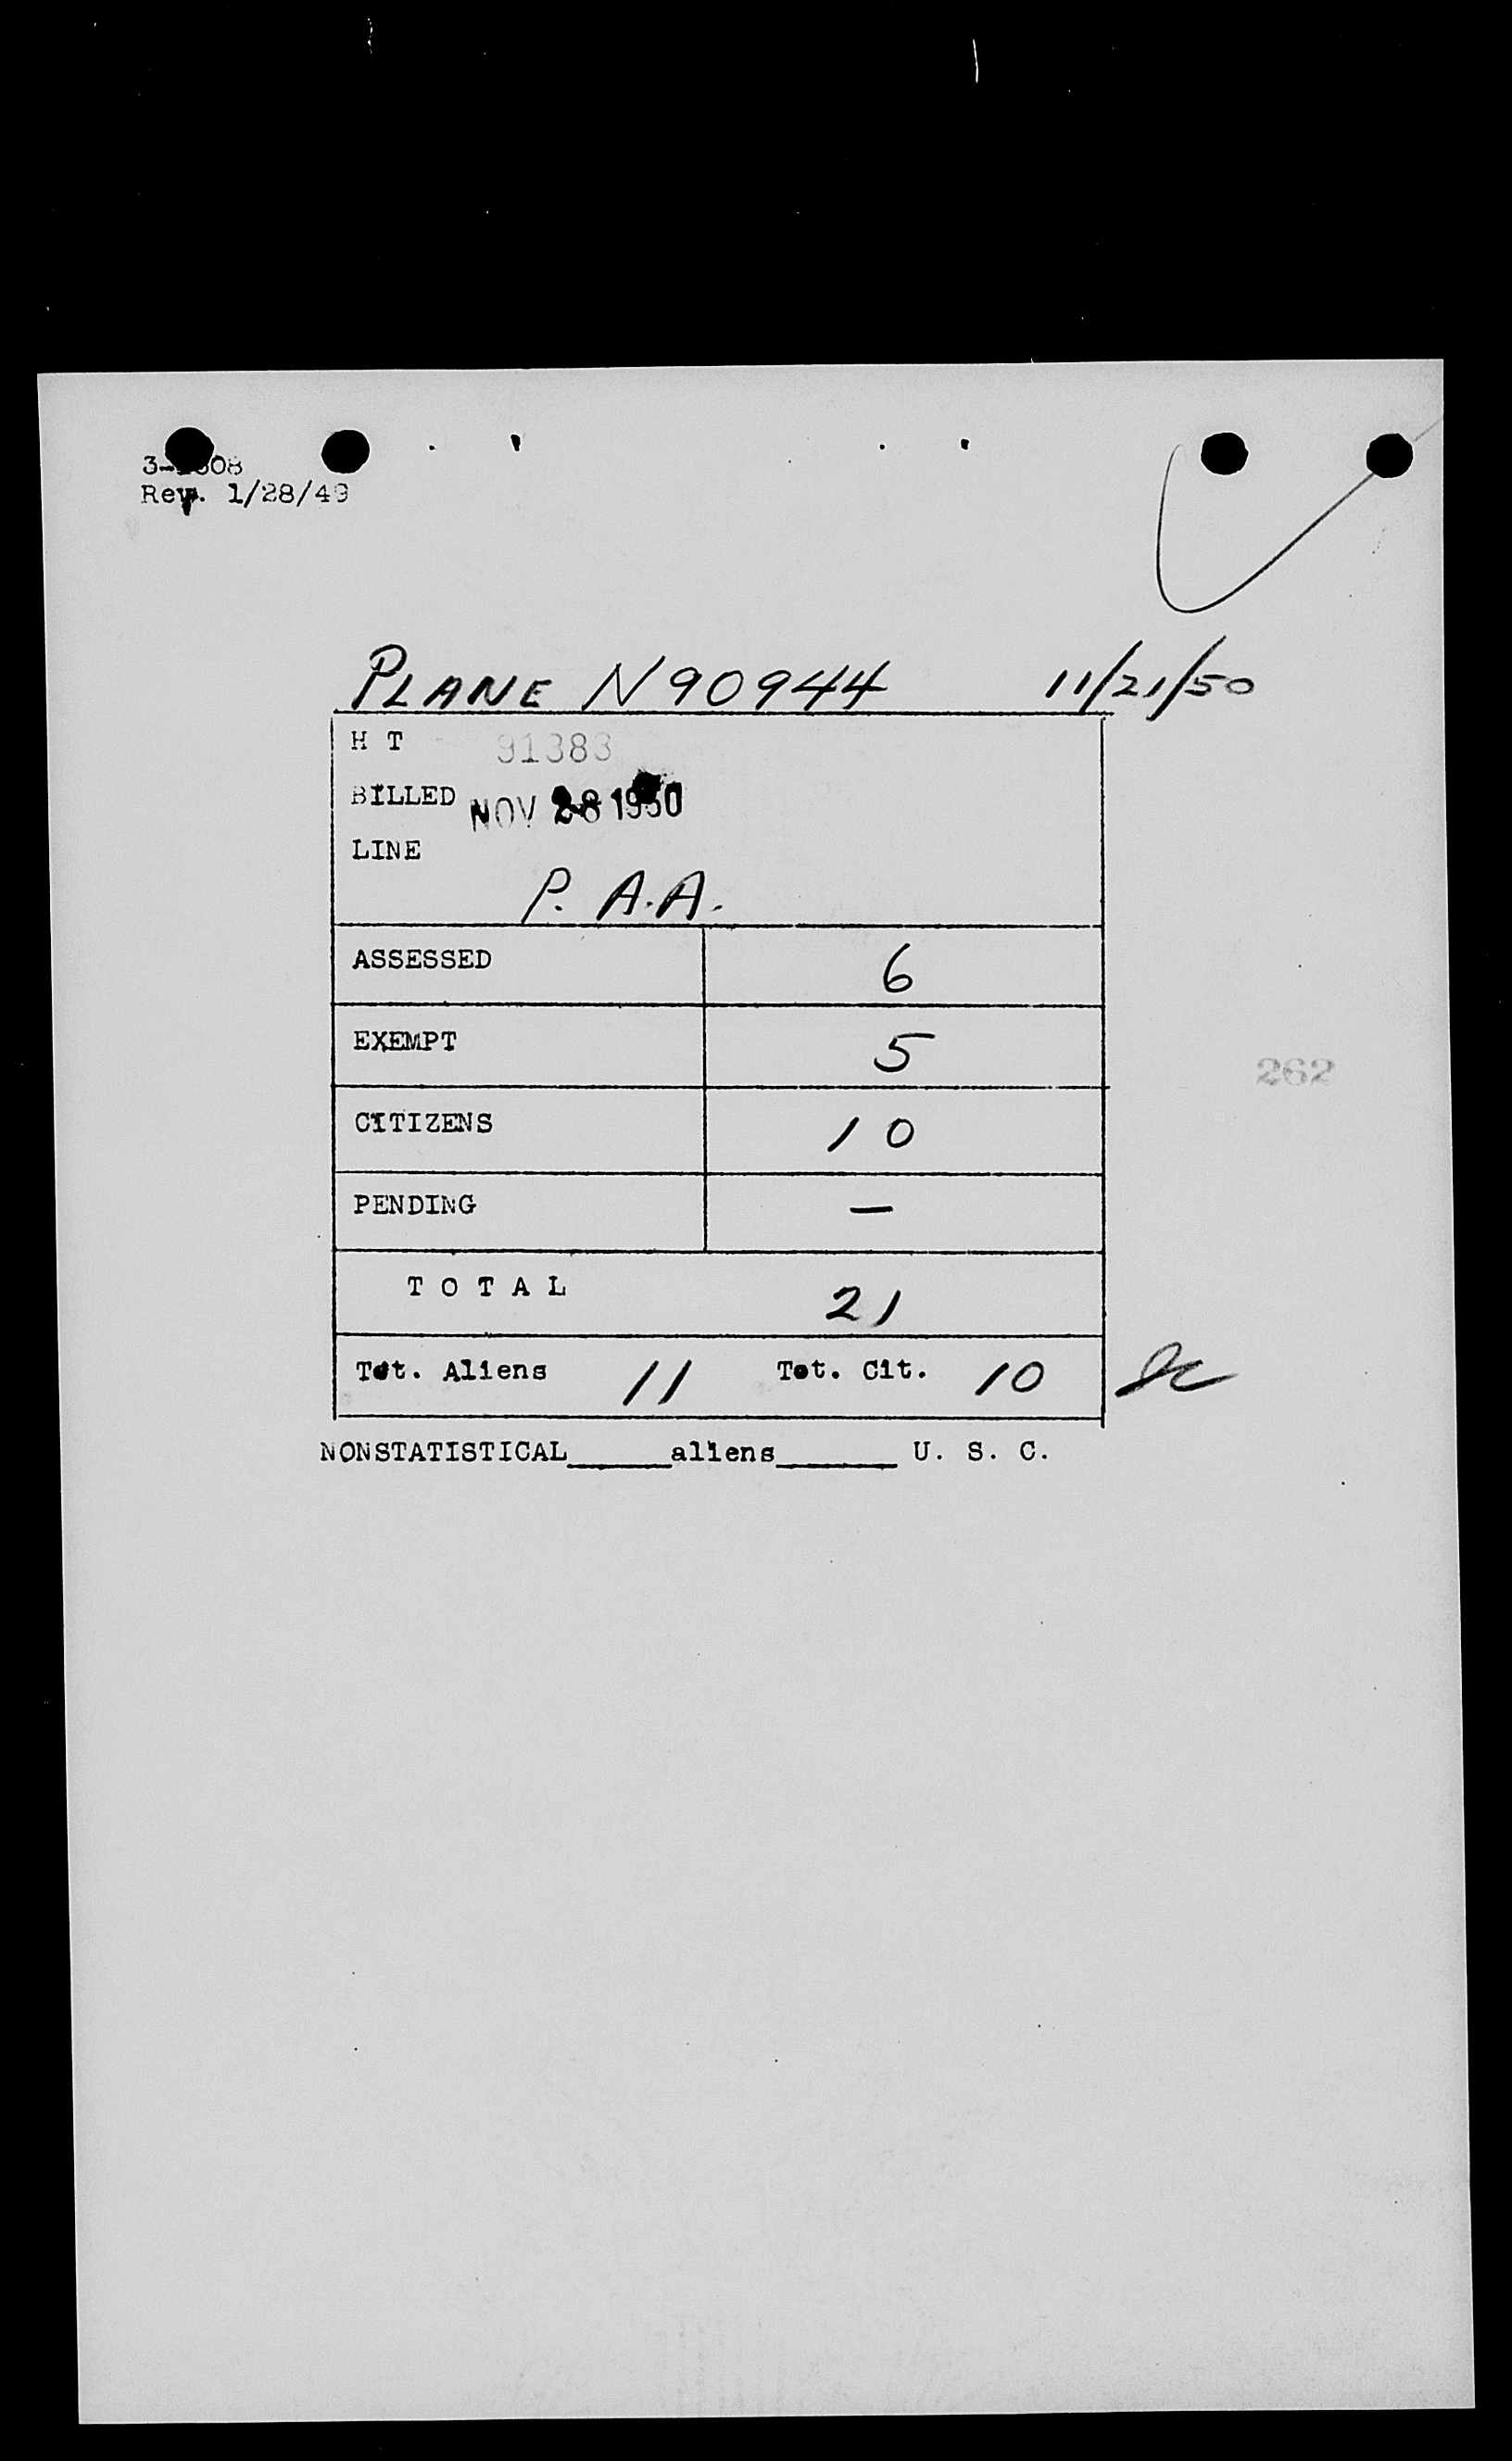 Rev. 1/28/49
PLANE N90944 11/21/50
H T 91383
BILLED NOV 28 1950
LINE
P. A.A.
ASSESSED 6
EXEMPT 5
262
CITIZENS 10
PENDING —
T O T A L 21
Tot. Aliens 11 Tot. Cit. 10
NONSTATISTICAL______aliens_______ U. S. C.